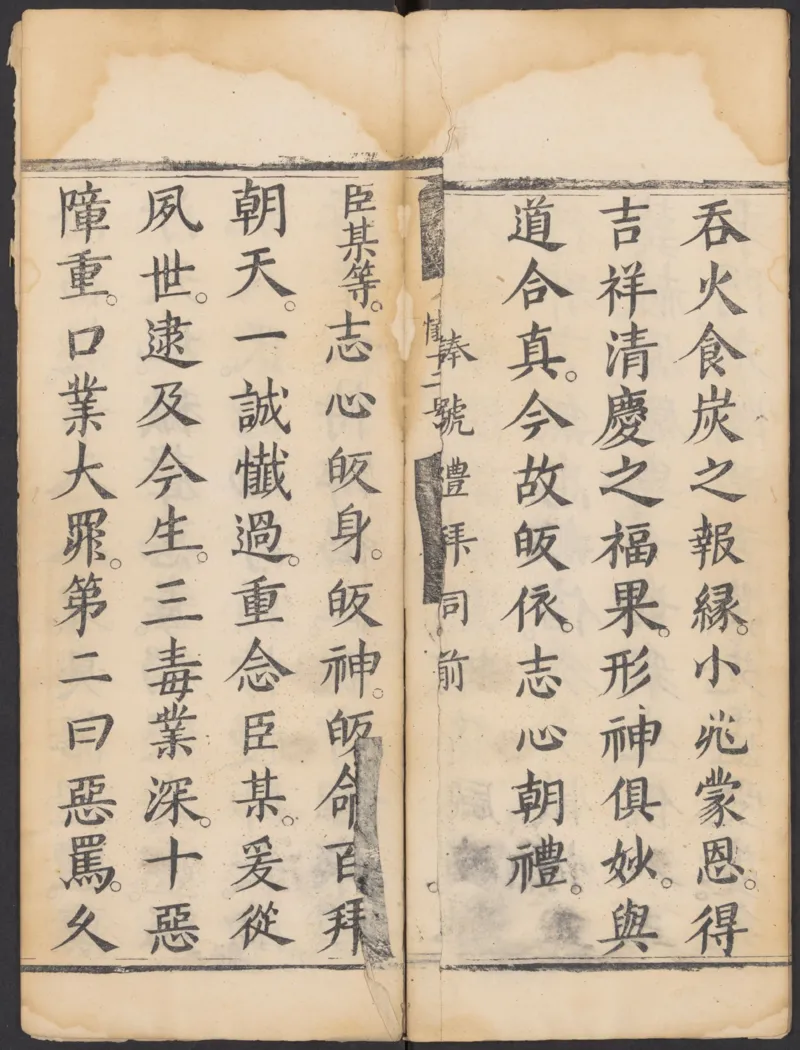 吞火食炭之報緣。小兆蒙恩。得
吉祥清慶之福果。形神俱妙。與
道合真。今故皈依。志心朝禮。
捧號禮拜同前
懺 二
臣某等。志心皈身。皈神。皈命。百拜
朝天。一誠懺過。重念臣某。爰從
夙世。逮及今生。三毒業深。十惡
障重。口業大罪。第二曰惡罵。夂